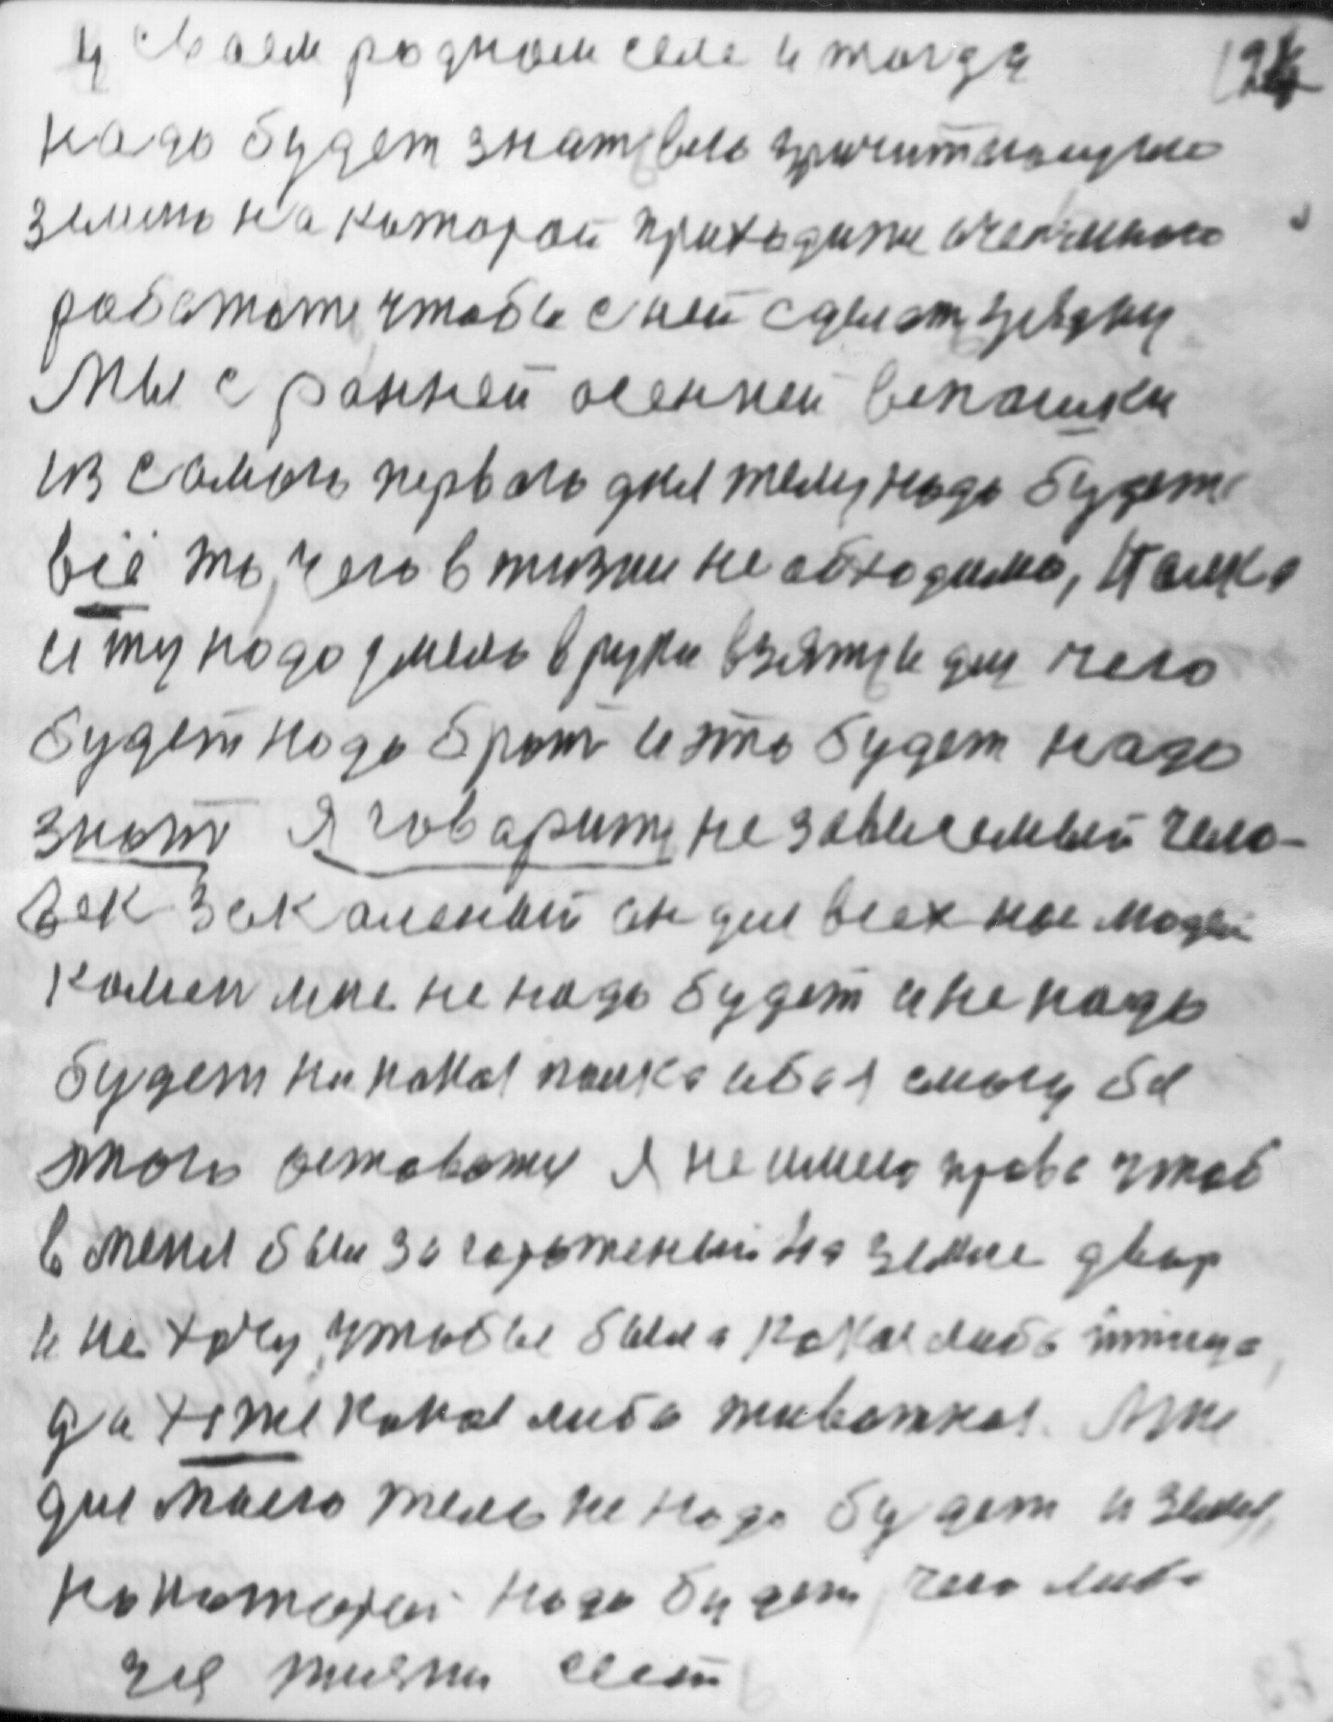 у своем родном селе и тогда 124
надо будет знать
землю на которой приходится очень много
работать чтобы с ней сделать грядку
Мы с ранней осенней вспашки
из самого первого дня телу надо будет
всё то, чего в жизни необходимо, Палка
и ту надо умело в руки взять и для чего
будет надо брат и это будет надо
знат Я говарить не зависемый чело-
век закаленый он для всех нас людей
камен мне не надо будет и не надо
будет ни какая палка ибо я смогу без
этого оставатся Я не имею права чтоб
в меня был загороженый на земле двор
и не хочу, чтобы была какая либо птица,
да хотя же какая либо животная. Мне
для моего тело не надо будет и земля,
на которой надо будет, чего либо
для жизни сеят